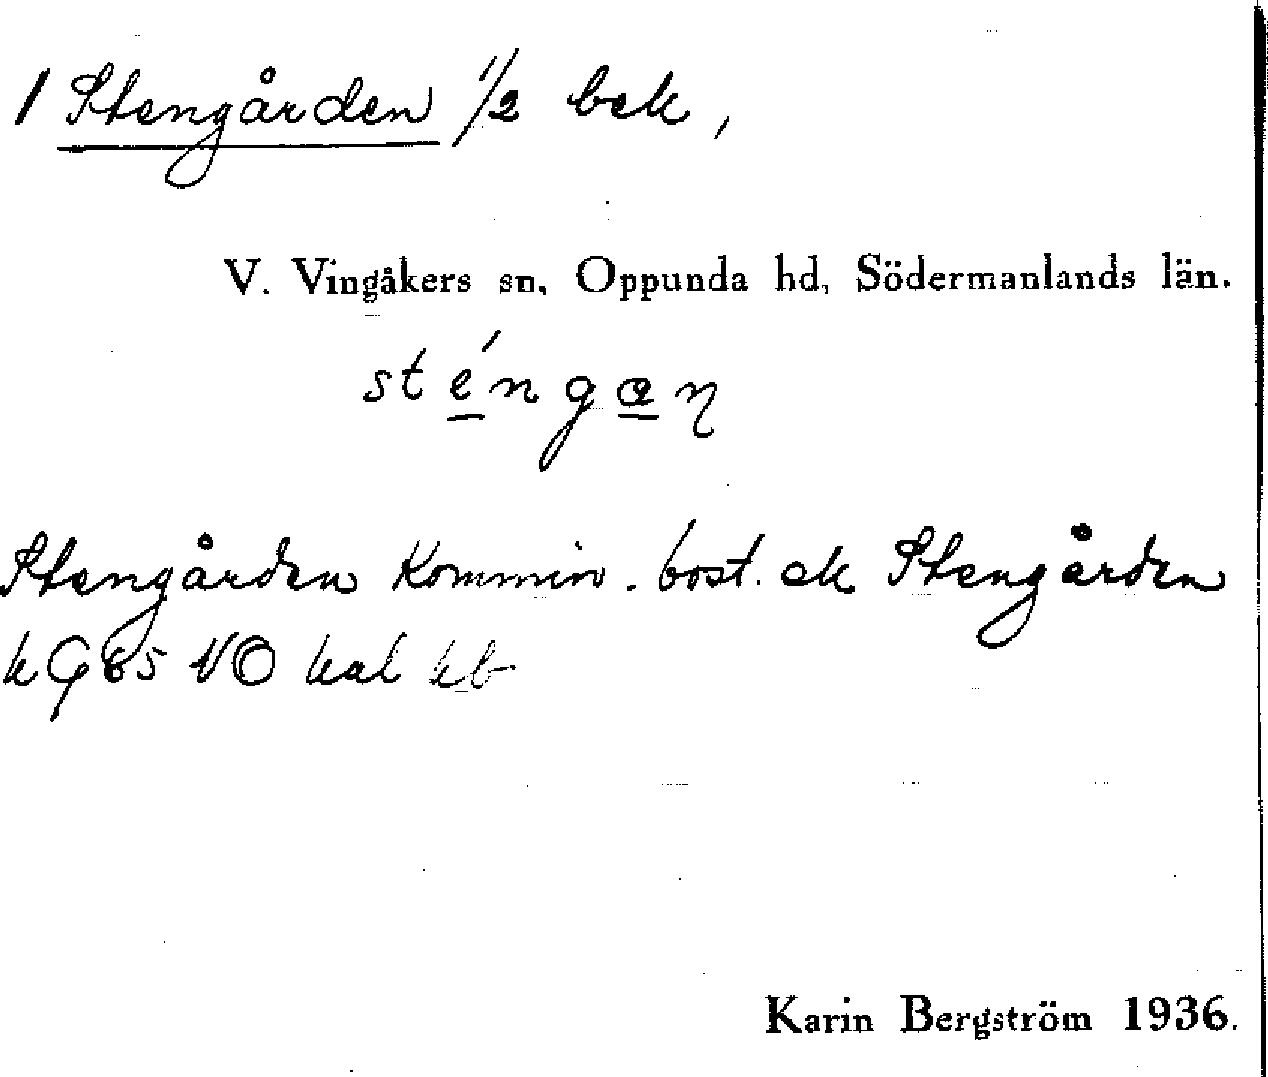 1 Stengården 1/2 bek,
V. Vingåkers sn, Oppunda hd, Södermanlands län.
sténgaη
Stengården Kommin. bost. ek Stengården
k G85 NO kal kb
Karin Bergström 1936.